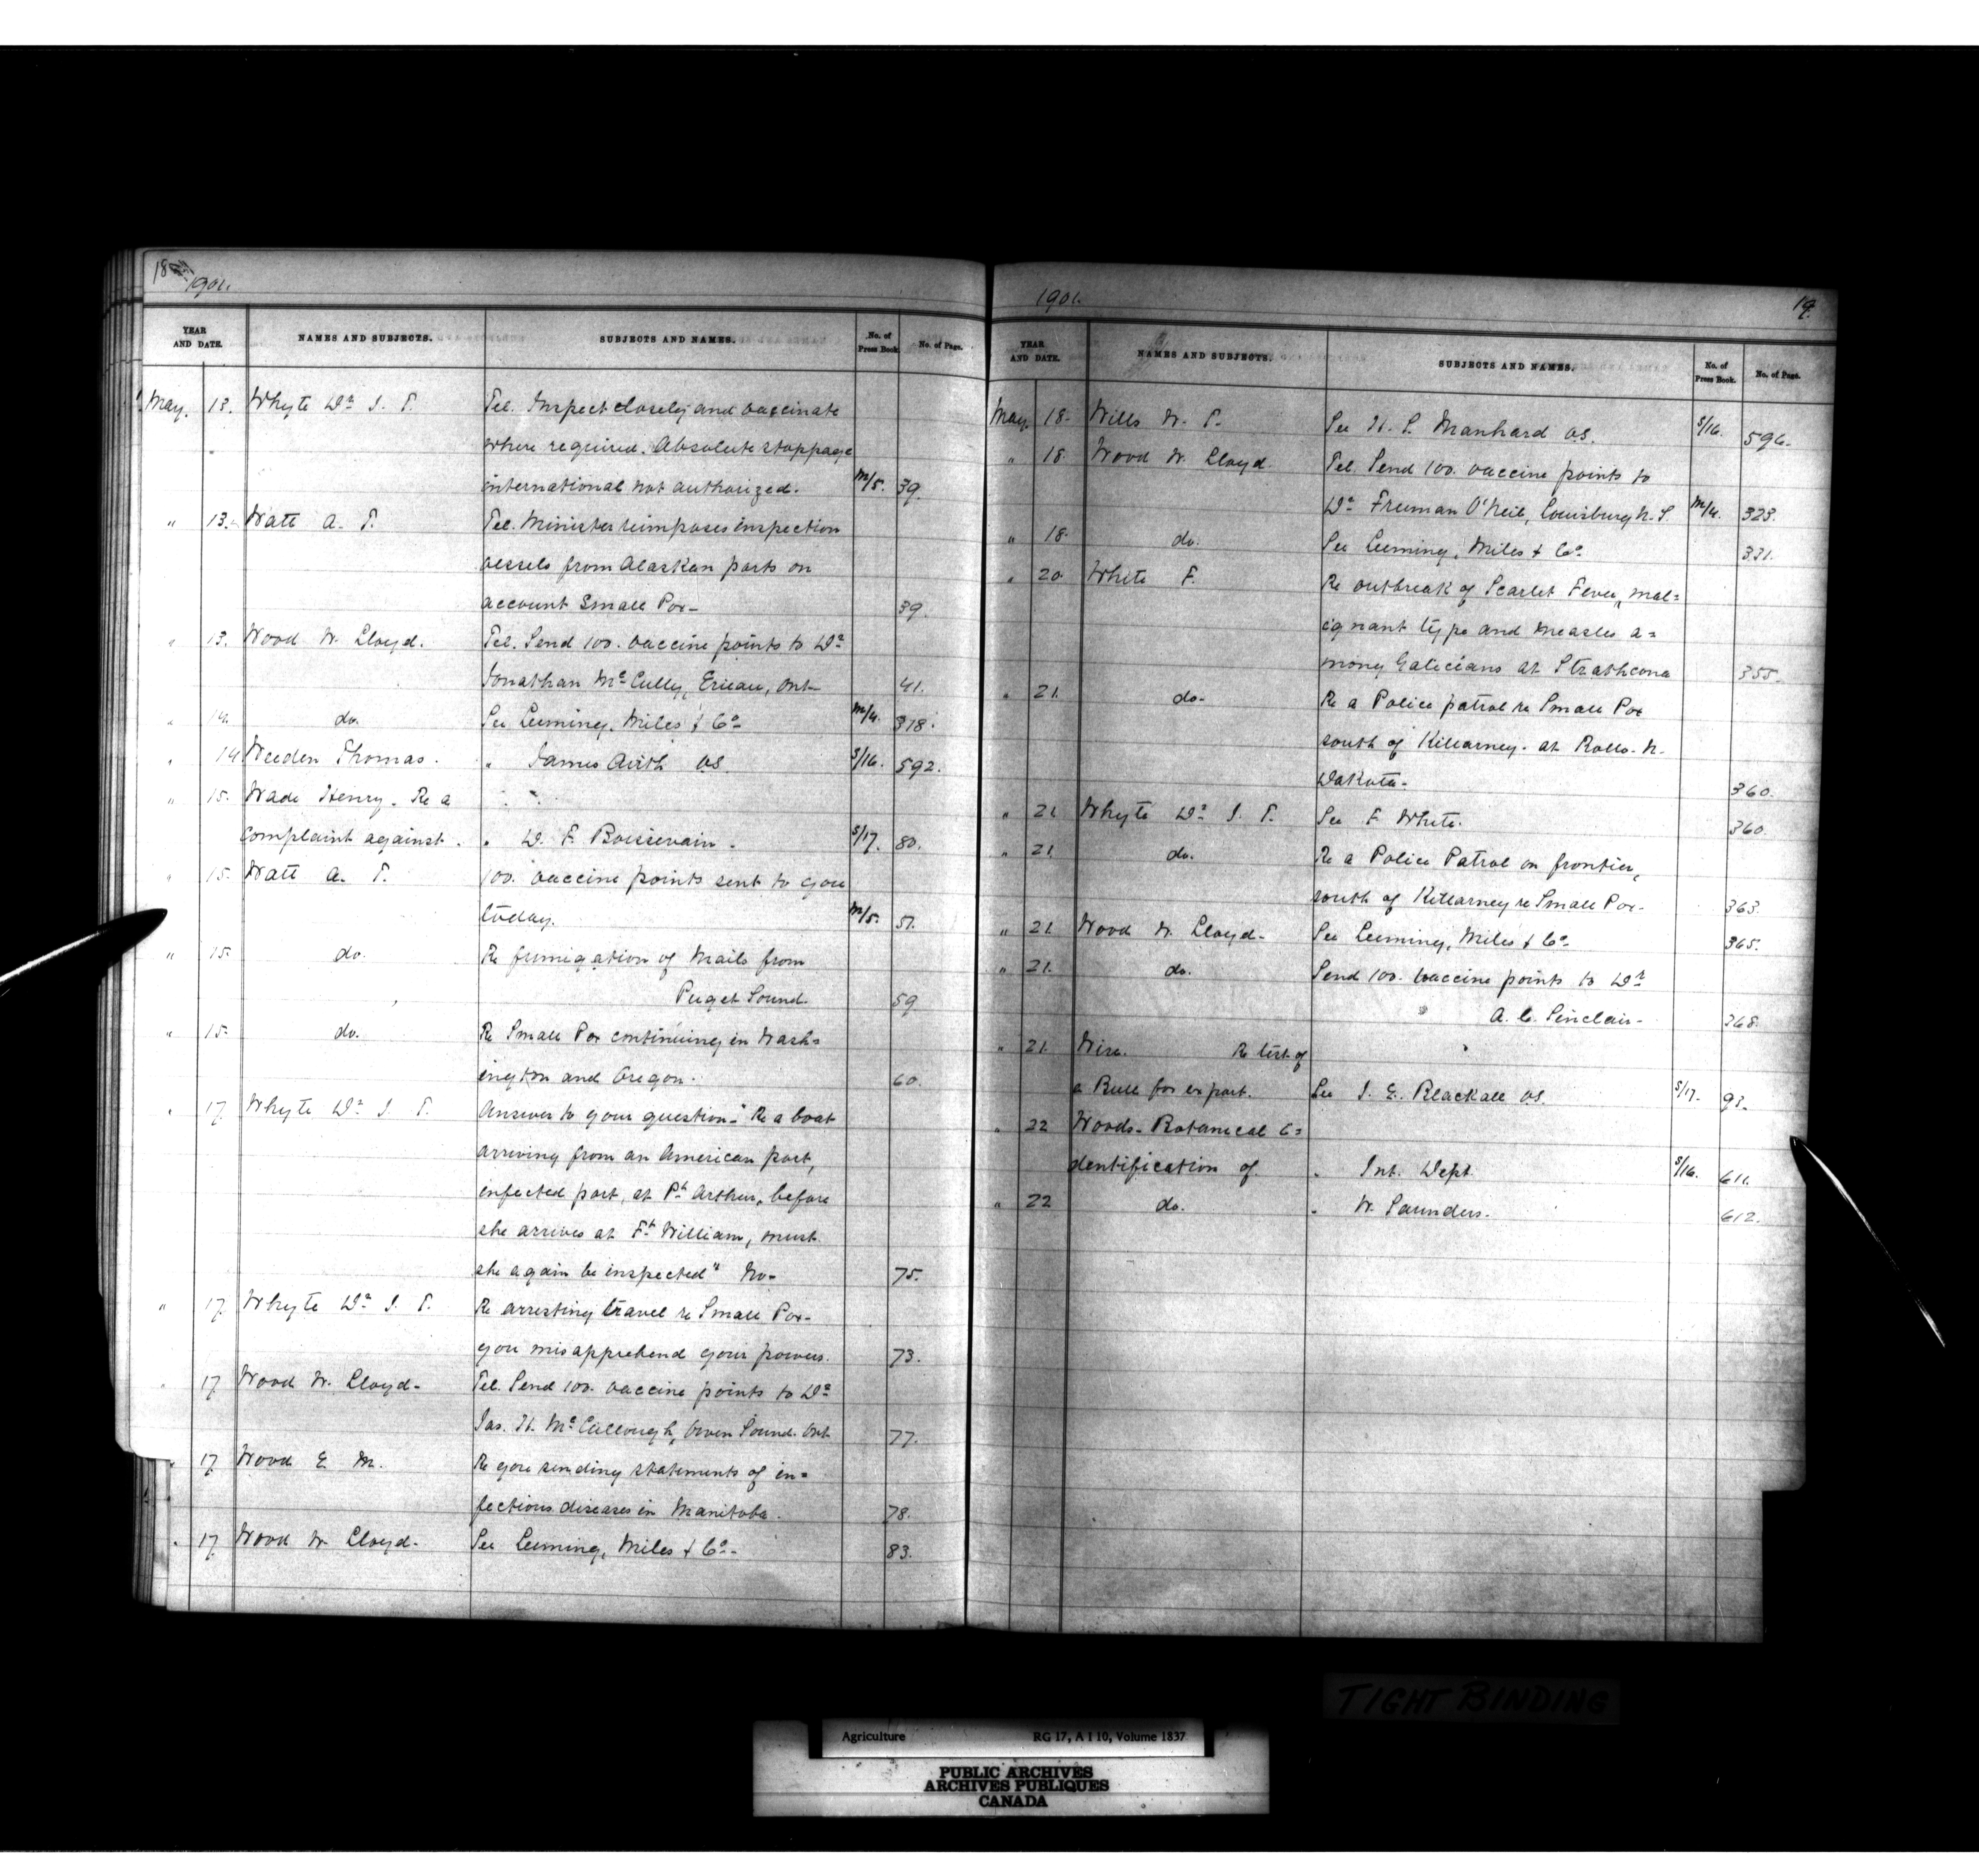 18
1901.
YEAR AND DATE. NAMES AND SUBJECTS. SUBJECTS AND NAMES. No. of Press Book. No. of Page.
May. 13. Whyte Dr. J. T. Tel. Inspect closely and vaccinate
where required. Absolute stoppage
international not authorized. M/5. 39.
" 13. Watt A. T. Tel. Minister reimposes inspection
vessels from Alaskan ports on
account Small Pox- 39.
" 13. Wood W. Lloyd. Tel. Send 100. vaccine points to Dr
Jonathan McCully, Erieau, Ont- 41.
" 14. do. See Leeming, Miles & Co- M/4. 318.
" 14 Weeden Thomas. " James Airth O.S. S/16. 592.
" 15. Wade Henry. Re a
complaint against. " D. F. Boissevain. S/17. 80.
" 15. Watt A. T. 100. vaccine points sent to you
today. M/5. 51.
" 15. do. Re fumigation of Mails from
Puget Sound. 59
" 15. do. Re Small Pox continuing in Wash=
ington and Oregon. 60.
" 17. Whyte Dr. J. T. Answer to your question-"Re a boat
arriving from an American port,
infected port, at Pt. Arthur, before
she arrives at Ft. William, must
she again be inspected" No- 75.
" 17. Whyte Dr. J. T. Re arresting travel re Small Pox-
you misapprehend your powers. 73.
" 17. Wood W. Lloyd- Tel. Send 100. vaccine points to Dr
Jas. H. McCullough, Owen Sound. Ont 77.
" 17. Wood E. M. Re your sending statements of in=
fectious diseases in Manitoba. 78.
" 17. Wood W. Lloyd- See Leeming, Miles & Co- 83.
1901. 19.
YEAR AND DATE. NAMES AND SUBJECTS. SUBJECTS AND NAMES. No. of Press Book. No. of Page.
May. 18. Wills W. T. See H. S. Manhard O.S. S/16. 596.
" 18. Wood W. Lloyd. Tel. Send 100. vaccine points to
Dr Freeman O'Neil, Louisburg N. S. M/4. 323.
" 18. do. See Leeming, Miles & Co- 331.
" 20. White F. Re outbreak of Scarlet Fever, mal=
ignant type and Measles a=
mong Galicians at Strathcona 355.
" 21. do- Re a Police patrol re Small Pox
south of Killarney. at Rolla. N.
Dakota- 360.
" 21. Whyte Dr. J. T. See F. White. 360.
" 21. do. Re a Police Patrol on frontier,
south of Killarney re Small Pox- 363.
" 21. Wood W. Lloyd- See Leeming, Miles & Co- 365.
" 21. do. Send 100. vaccine points to Dr
A. C. Sinclair- 368.
" 21. Wire. Re test of
a Rule for export. See J. E. Blackall O.S. S/17. 93.
" 22 Woods- Botanical I=
dentification of " Int. Dept. S/16. 611.
" 22 do. " W. Saunders- 612.
TIGHT BINDING
Agriculture RG 17, A I 10, Volume 1837
PUBLIC ARCHIVES
ARCHIVES PUBLIQUES
CANADA